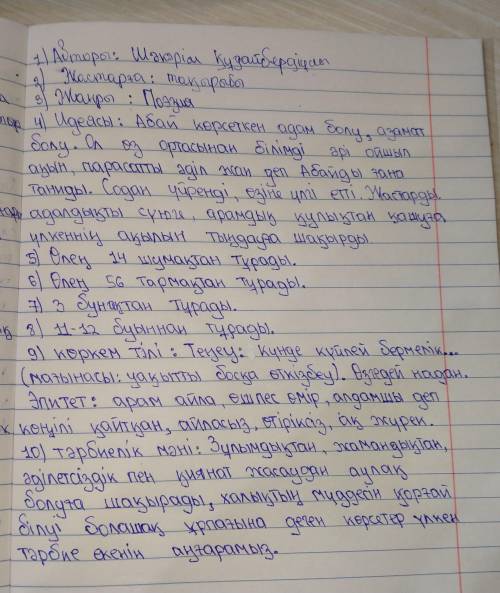 1) Авторы: Шәкәрім Құдайбердіұлы
2) Жастарға: тақырыбы
3) Жанры: Поэзия
4) Идеясы: Абай көрсеткен адам болу, азамат
болу. Ол өз ортасынан білімді әрі ойшыл
ақын, парасатты әділ жан деп Абайды ғана
таниды. Содан үйренді, өзіне үлгі етті. Жастарды
адалдықты сүюге, арамдық қулықтан қашуға
үлкеннің ақылын тыңдауға шақырды
5) Өлең 14 шумақтан тұрады.
6) Өлең 56 тармақтан тұрады.
7) 3 бунақтан тұрады.
8) 11-12 буыннан тұрады.
9) көркем тілі: Теңеу: күнде күйлей бермелік...
(мағынасы: уақытты босқа өткізбеу). Өзгедей надан.
Эпитет: арам айла, өшпес өмір, алдамшы деп
көңілі қайтқан, айласыз, өтіріксіз, ақ жүрек.
10) тәрбиелік мәні: Зұлымдықтан, жамандықтан,
әділетсіздік пен қиянат жасаудан аулақ
болуға шақырады, халықтың мүддесін қорғай
білуі болашақ ұрпағына деген көрсетер үлкен
тәрбие екенін аңғарамыз.